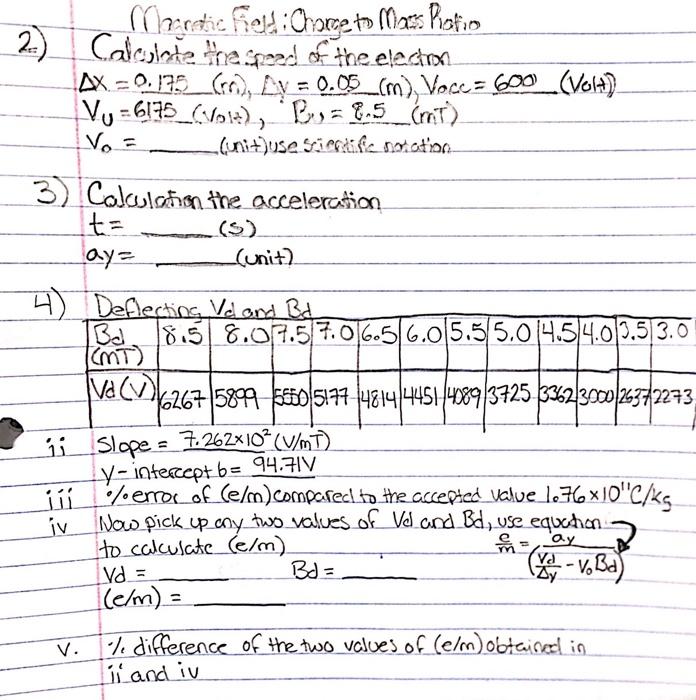 Magnetic Field: Charge to Mass Ratio
2) Calculate the speed of the electron
Δx = 0.175 (m), Δy = 0.05 (m), Vacc = 600 (Volt)
Vu = 6175 (Volt), Bu = 8.5 (mT)
Vo = ______ (unit) use scientific notation
3) Calculation the acceleration
t = ______ (s)
ay = ______ (unit)
4) Deflecting Vd and Bd
Bd (mT) 8.5 8.0 7.5 7.0 6.5 6.0 5.5 5.0 4.5 4.0 3.5 3.0
Vd (V) 6267 5899 5550 5177 4814 4451 4089 3725 3362 3000 2637 2273
ii Slope = 7.262×10² (V/mT)
y-intercept b = 94.71V
iii % error of (e/m) compared to the accepted value 1.76×10¹¹C/kg
iv Now pick up any two values of Vd and Bd, use equation
to calculate (e/m) e/m = ay/(Vd/Δy - VoBd)
Vd = ______ Bd = ______
(e/m) = ______
v. % difference of the two values of (e/m) obtained in
ii and iv